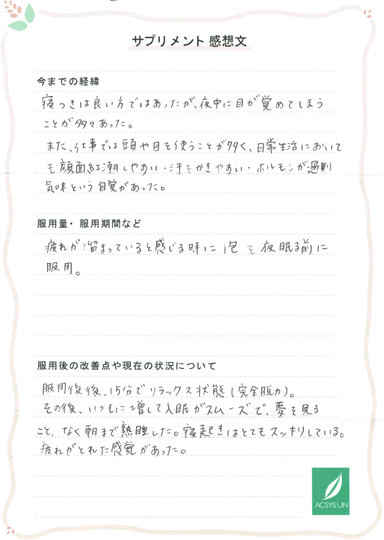 サプリメント 感想文
今までの経緯
寝つきは良い方ではあったが、夜中に目が覚めてしまう
ことが多々あった。
また、仕事では頭や目を使うことが多く、日常生活において
も顔面紅潮しやすい・汗をかきやすい・ホルモンが過剰
気味という自覚があった。
服用量・服用期間など
疲れが溜まっていると感じる時に1包を夜眠る前に
服用。
服用後の改善点や現在の状況について
服用後、15分でリラックス状態(完全脱力)。
その後、いつもに増して入眠がスムーズで、夢を見る
こと、なく朝まで熟睡した。寝起きはとてもスッキリしている。
疲れがとれた感覚があった。
ACSYS UN